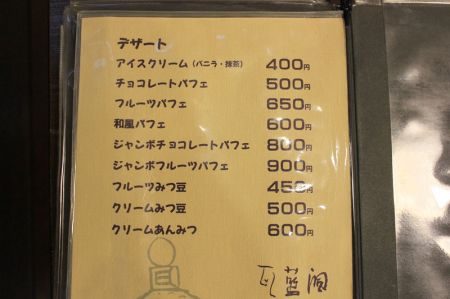 デザート
アイスクリーム（バニラ・抹茶） 400円
チョコレートパフェ 500円
フルーツパフェ 650円
和風パフェ 600円
ジャンボチョコレートパフェ 800円
ジャンボフルーツパフェ 900円
フルーツみつ豆 450円
クリームみつ豆 500円
クリームあんみつ 600円